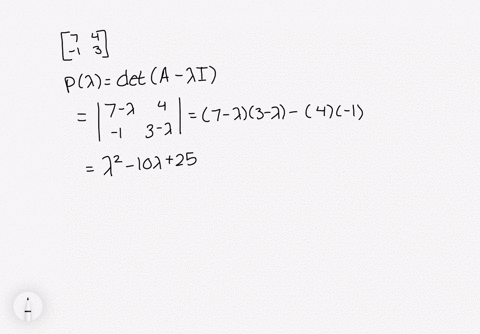 [7 4
-1 3]
P(λ) = det(A - λI)
= |7-λ 4
-1 3-λ| = (7-λ)(3-λ) - (4)(-1)
= λ² - 10λ + 25